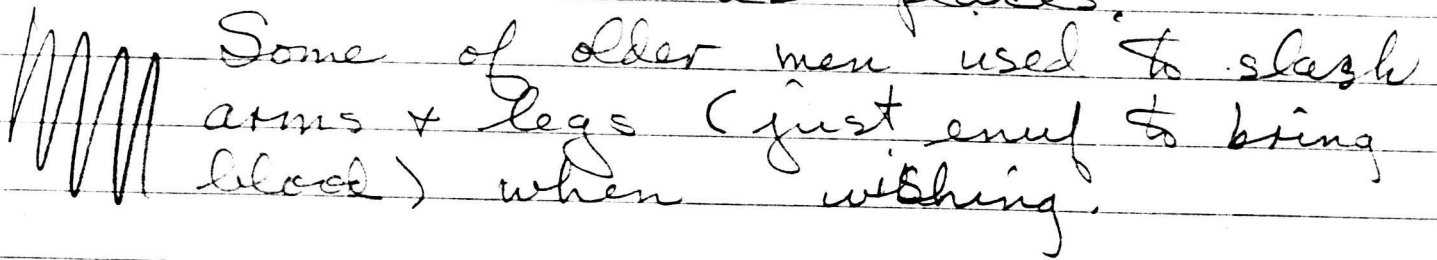 places.
Some of older men used to slash
arms + legs (just enuf to bring
blood) when wishing.